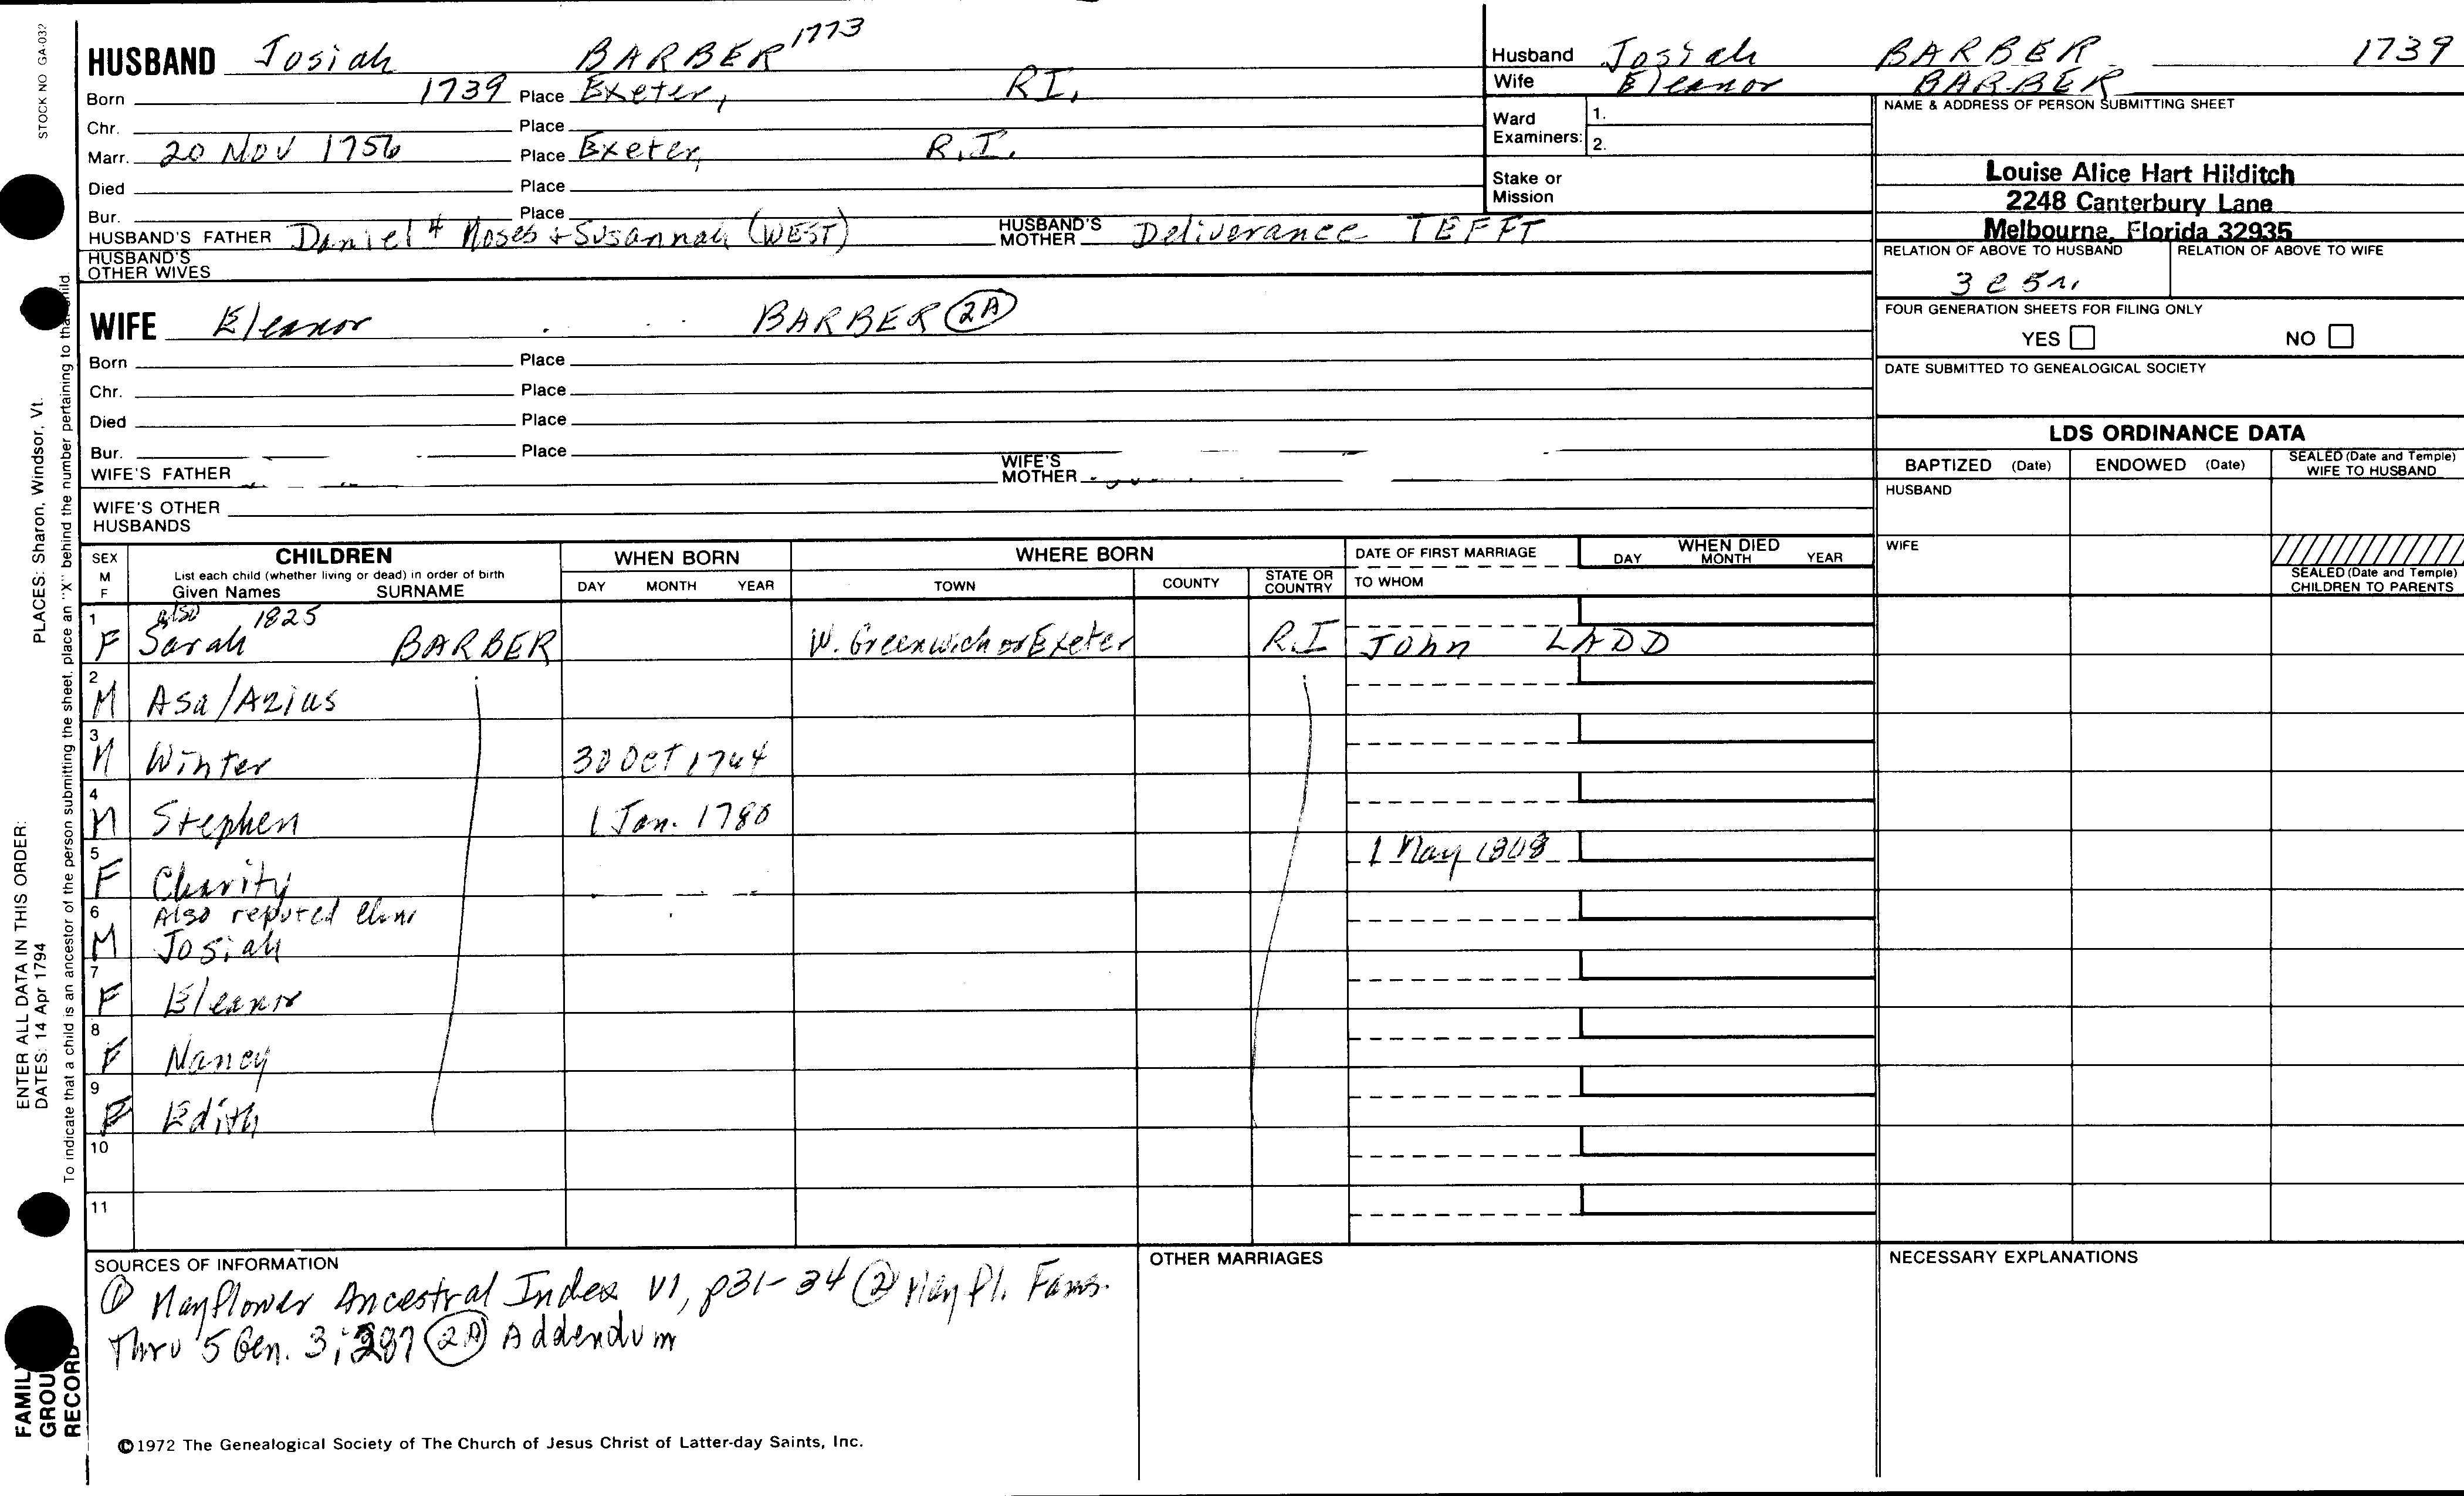 STOCK NO GA-032
HUSBAND Josiah BARBER 1773
Born 1739 Place Exeter, RI,
Chr. Place
Marr. 20 Nov 1756 Place Exeter, R.I.
Died Place
Bur. Place
HUSBAND'S FATHER Daniel 4 Moses + Susannah (WEST) HUSBAND'S MOTHER Deliverance TEFFT
HUSBAND'S OTHER WIVES
WIFE Eleanor BARBER (2A)
Born Place
Chr. Place
Died Place
Bur. Place
WIFE'S FATHER WIFE'S MOTHER
WIFE'S OTHER HUSBANDS
Husband Josiah BARBER 1739
Wife Eleanor BARBER
Ward Examiners: 1.
2.
Stake or Mission
NAME & ADDRESS OF PERSON SUBMITTING SHEET
Louise Alice Hart Hilditch
2248 Canterbury Lane
Melbourne, Florida 32935
RELATION OF ABOVE TO HUSBAND RELATION OF ABOVE TO WIFE
FOUR GENERATION SHEETS FOR FILING ONLY
YES NO
DATE SUBMITTED TO GENEALOGICAL SOCIETY
LDS ORDINANCE DATA
BAPTIZED (Date) ENDOWED (Date) SEALED (Date and Temple) WIFE TO HUSBAND
HUSBAND
WIFE
SEALED (Date and Temple) CHILDREN TO PARENTS
SEX M F CHILDREN WHEN BORN WHERE BORN DATE OF FIRST MARRIAGE WHEN DIED
List each child (whether living or dead) in order of birth
Given Names SURNAME DAY MONTH YEAR TOWN COUNTY STATE OR COUNTRY TO WHOM DAY MONTH YEAR
1 also 1825
F Sarah BARBER W. Greenwich or Exeter R.I John LADD
2 M Asa/Azias
3 M Winter 30 Oct 1764
4 M Stephen 1 Jan. 1780
5 F Charity 1 May 1808
6 Also reputed
M Josiah
7 F Eleanor
8 F Nancy
9 F Edith
10
11
SOURCES OF INFORMATION
① Mayflower Ancestral Index V1, p31-34 ② May Fl. Fams.
Thru 5 Gen. 3; 287 (2A) Addendum
OTHER MARRIAGES
NECESSARY EXPLANATIONS
©1972 The Genealogical Society of The Church of Jesus Christ of Latter-day Saints, Inc.
PLACES: Sharon, Windsor, Vt.
ENTER ALL DATA IN THIS ORDER:
DATES: 14 Apr 1794
To indicate that a child is an ancestor of the person submitting the sheet, place an "X" behind the number pertaining to that child.
FAMILY
GROUP
RECORD